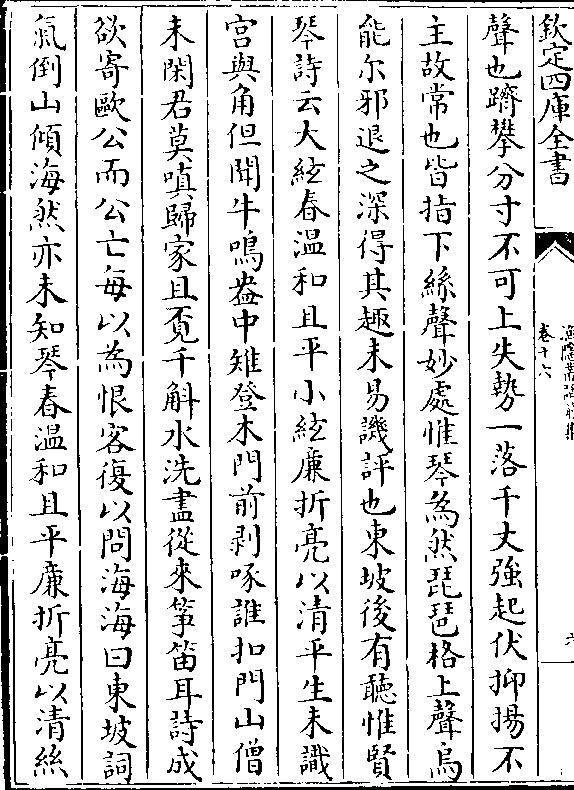 欽定四庫全書
漁隱叢話前集
卷十六
六
聲也躋攀分寸不可上失勢一落千丈強起伏抑揚不
主故常也皆指下絲聲妙處惟琴為然琵琶格上聲烏
能尔邪退之深得其趣未易譏評也東坡後有聽惟賢
琴詩云大絃春温和且平小絃廉折亮以清平生未識
宫與角但聞牛鳴盎中雉登木門前剥啄誰扣門山僧
未閑君莫嗔歸家且覔千斛水洗盡從來箏笛耳詩成
欲寄歐公而公亡每以為恨客復以問海海曰東坡詞
氣倒山傾海然亦未知琴春温和且平廉折亮以清絲